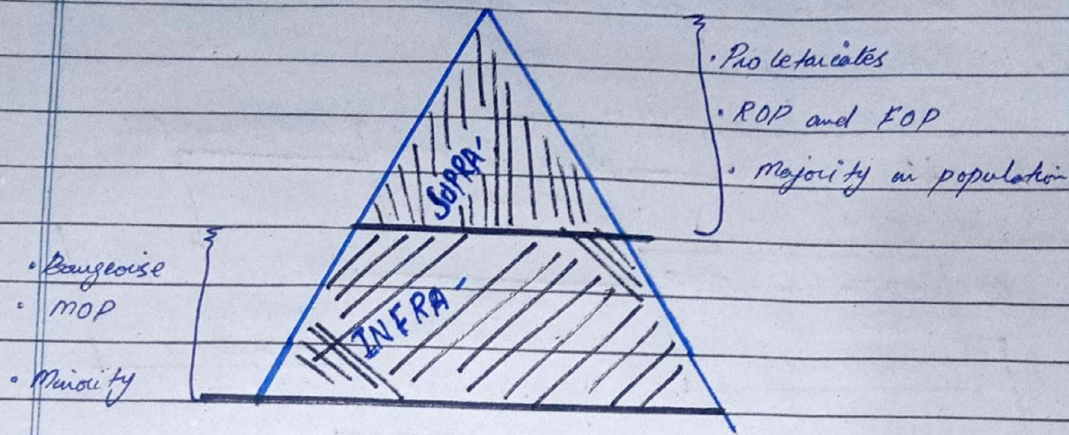 • Proletariates
• ROP and FOP
• Majority in population
SUPRA-
• Bourgeoise
• MOP
• Minority
INFRA-